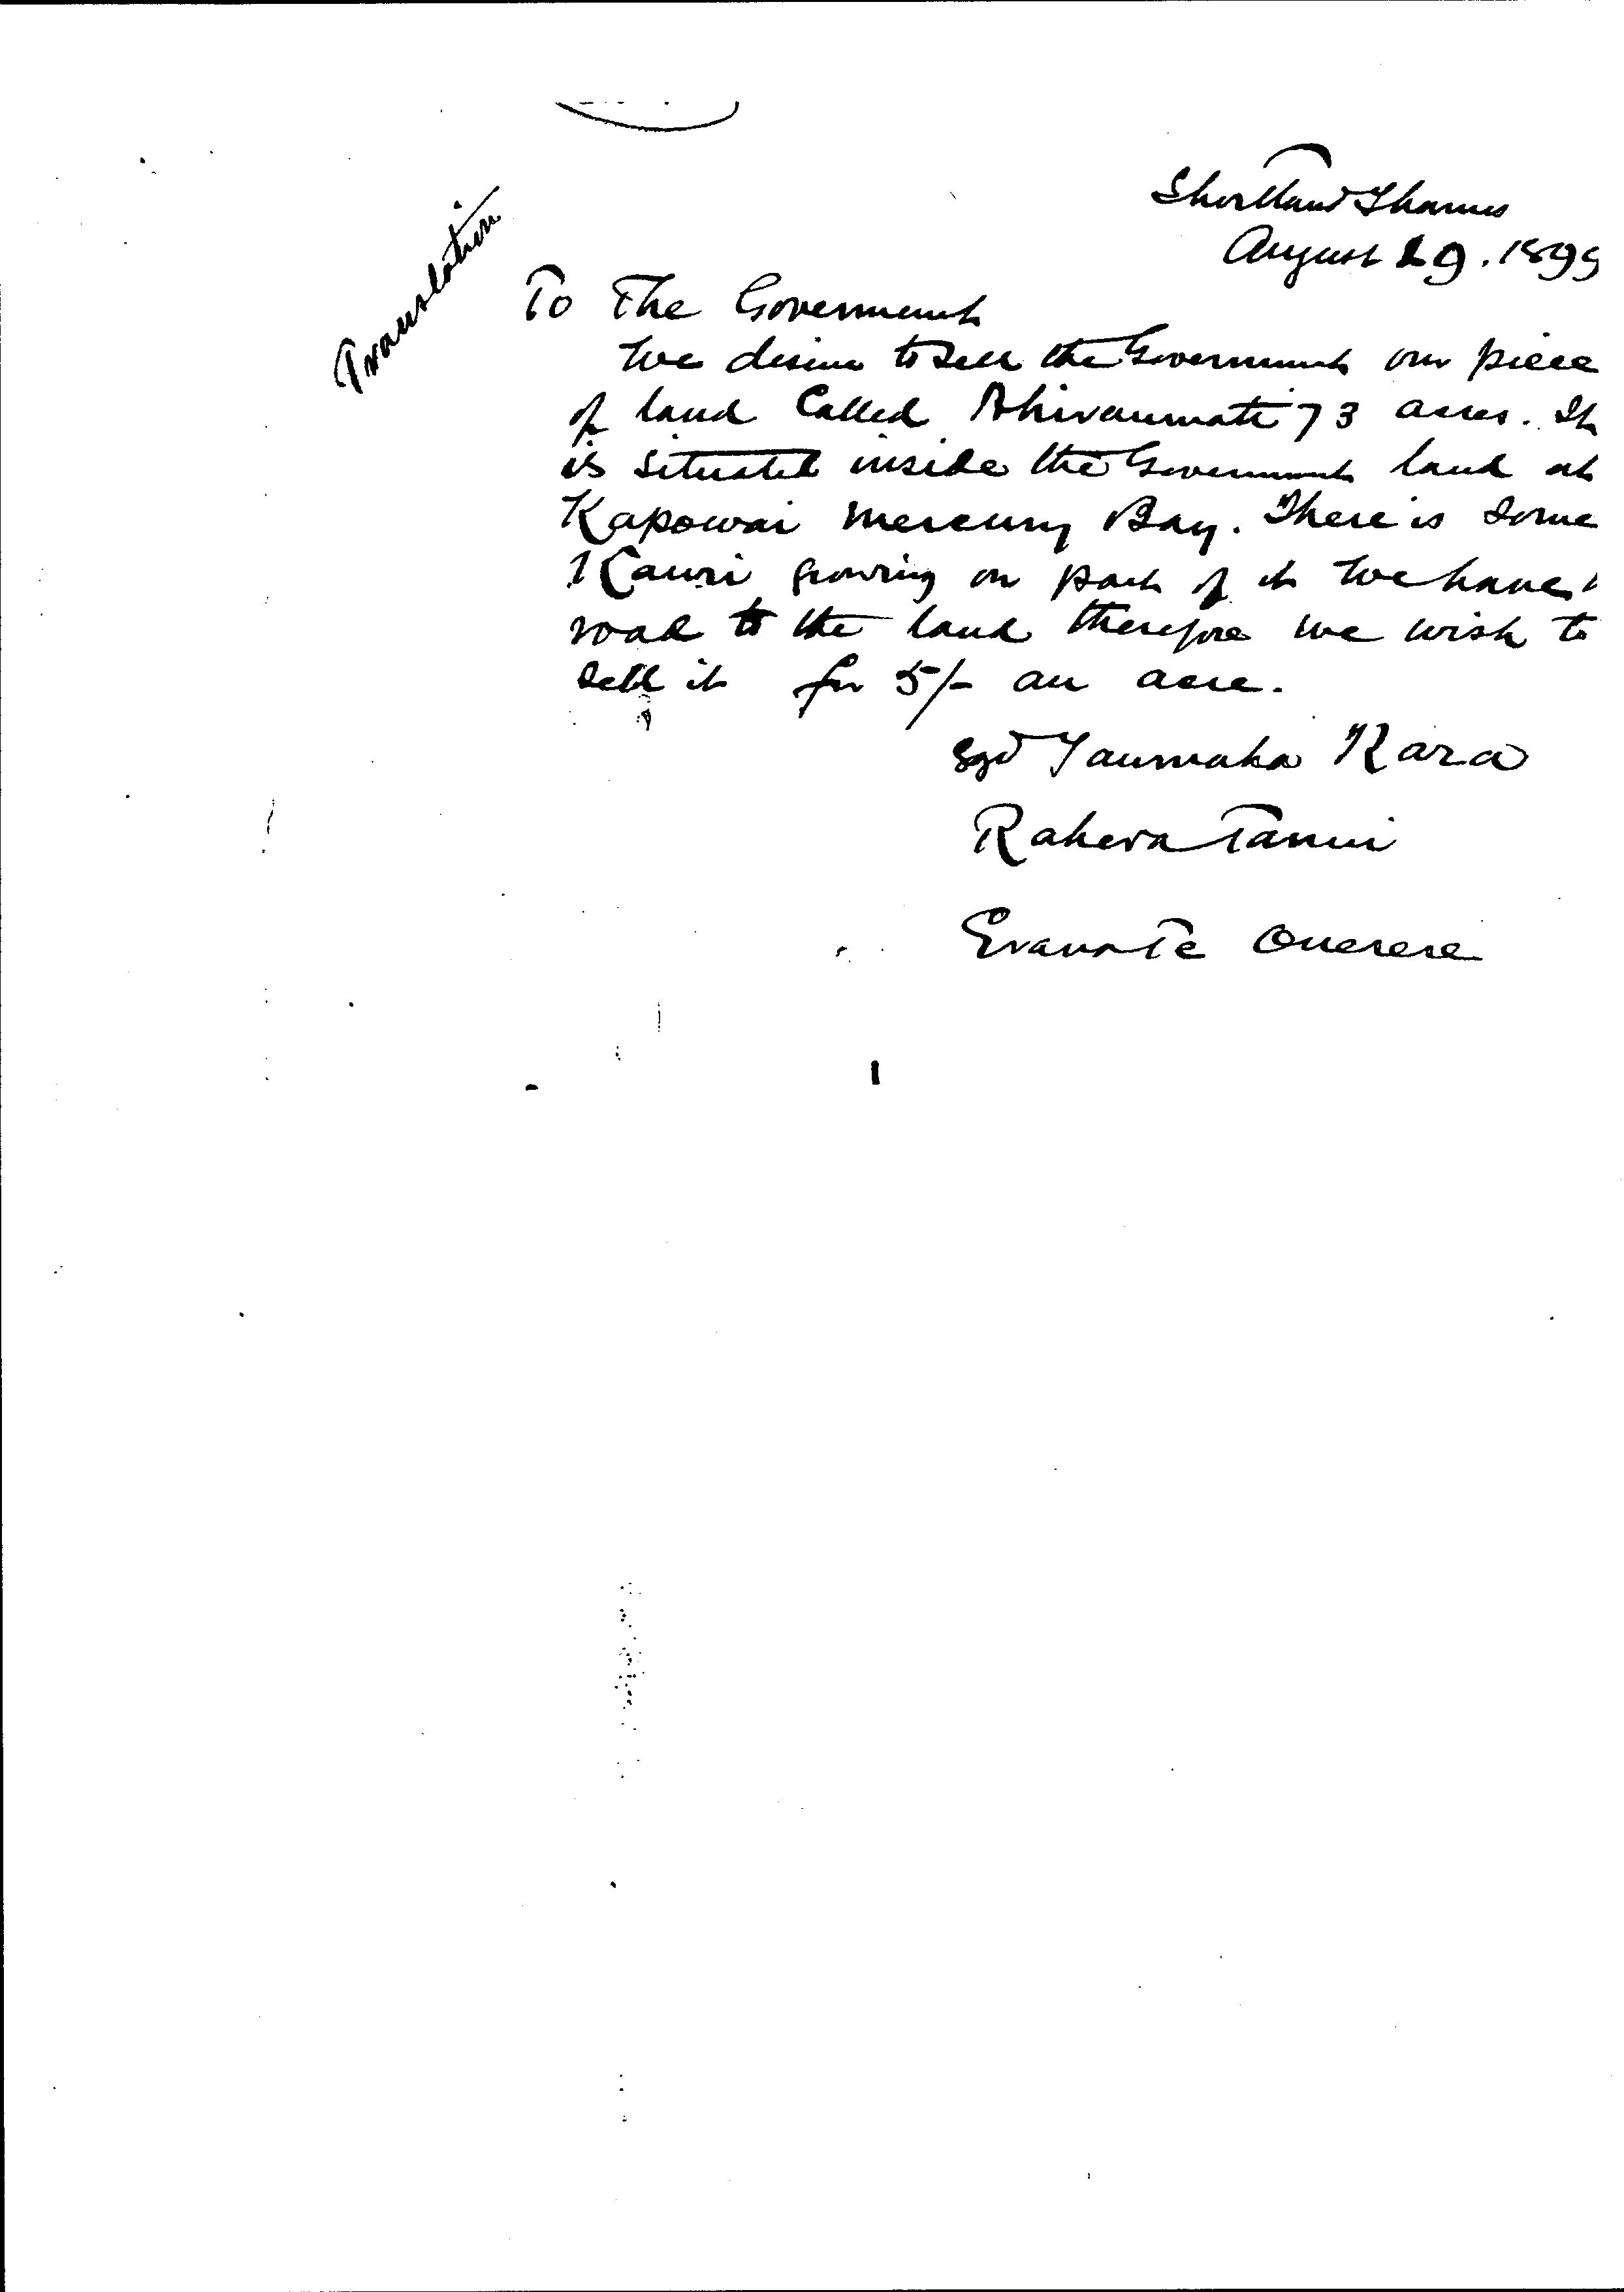 Translation
Shortland Thames
August 29. 1899
To The Government
We desire to sell the Government our piece
of land Called 73 acres. It
is situated inside the Government land at
Kapowai Mercury Bay. There is some
Kauri growing on part of it We have
road to the land therefore we wish to
sell it for 5/- an acre.
Sgd Taumaha Kara
Rahera Tanui
Erana Te Onerere